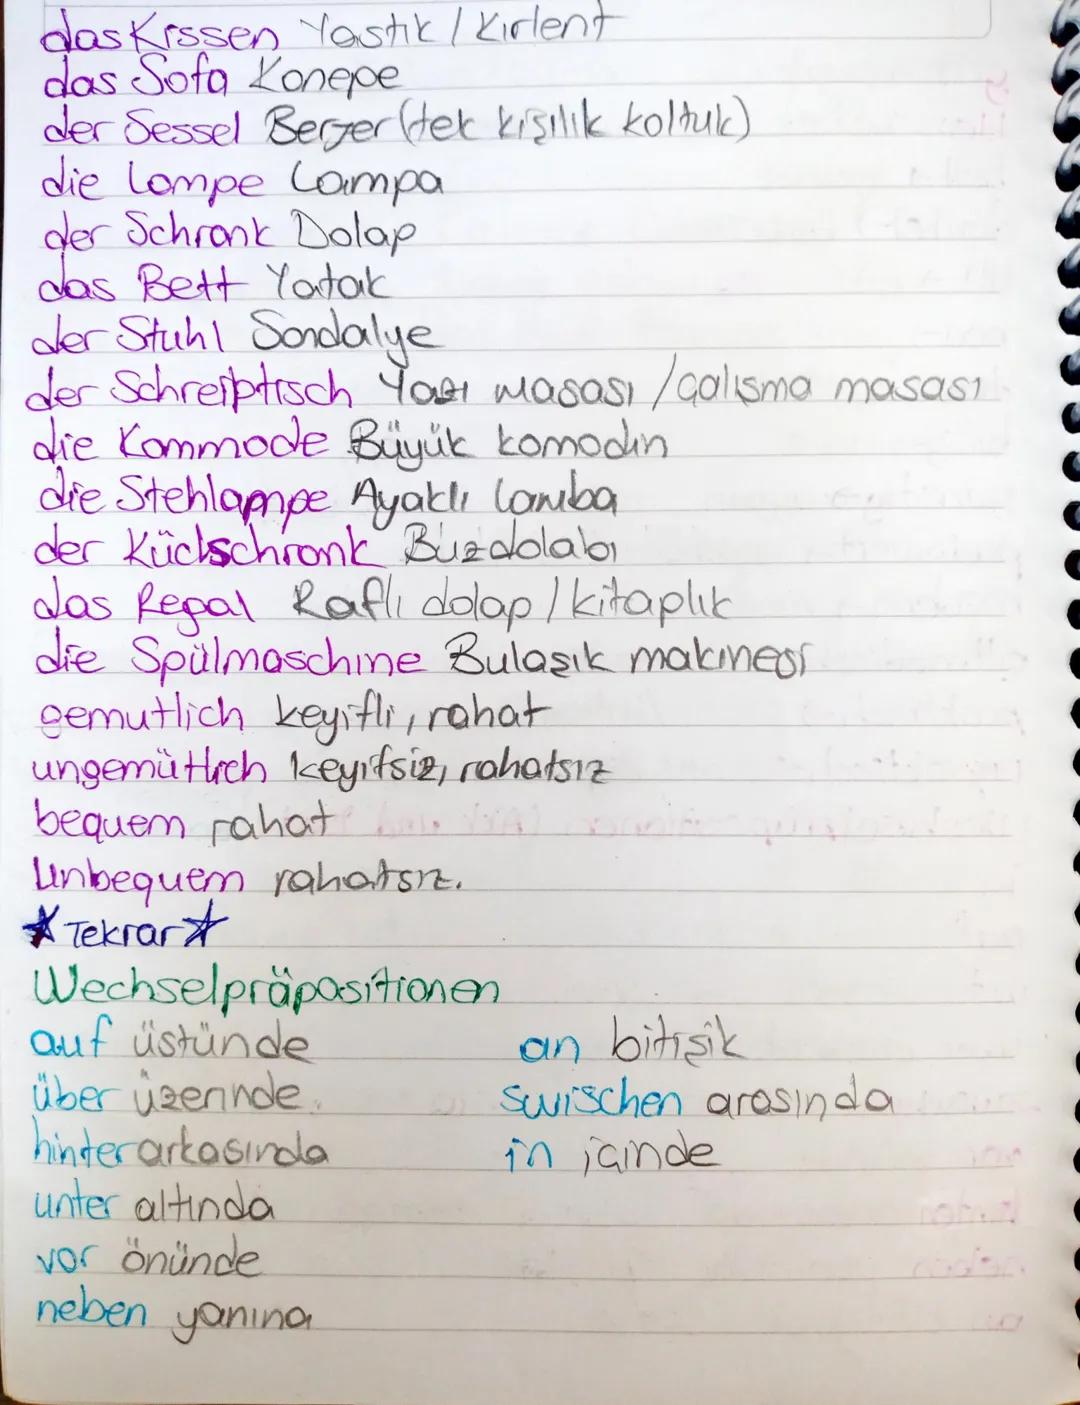 das Kissen Yastık / Kırlent
das Sofa Kanepe
der Sessel Berjer (tek kişilik koltuk)
die Lampe Lampa
der Schrank Dolap
das Bett Yatak
der Stuhl Sandalye
der Schreiptisch Yazı masası / çalışma masası
die Kommode Büyük komodin
die Stehlampe Ayaklı lamba
der Kücklschrank Buzdolabı
das Regal Raflı dolap / kitaplık
die Spülmaschine Bulaşık makinesi
gemutlich keyifli, rahat
ungemütlich keyifsiz, rahatsız
bequem rahat
Unbequem rahatsız.
★ Tekrar ★
Wechselpräpositionen
auf üstünde an bitişik
über üzerinde swischen arasında
hinter arkasında in içinde
unter altında
vor önünde
neben yanına